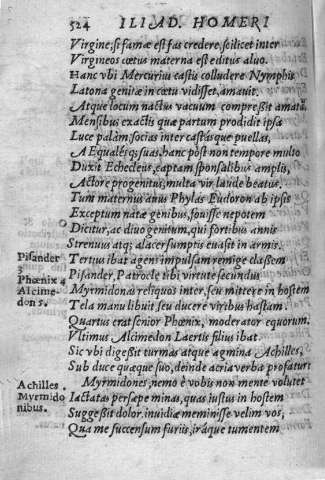 524 ILIAD. HOMERI
Virgine; si famæ est fas credere, scilicet inter
Virgineos cœtus materna est editus aluo.
Hanc vbi Mercurius castis colludere Nymphis
Latona genitæ in cœtu vidisset, amauit.
Atque locum nactus vacuum compreßit amatā,
Mensibus exactis quæ partum prodidit ipsa
Luce palàm; socias inter castásque puellas,
AEqualésq; suas, hanc pòst non tempore multo
Duxit Echecleus, captam sponsalibus amplis,
Actore progenitus; multa vir laude beatus.
Tum maternus auus Phylas Eudoron ab ipsis
Exceptum natæ genibus, fouisse nepotem
Dicitur, ac diuo genitum, qui fortibus annis
Strenuus atq; alacer sumptis euasit in armis.
Pisander Tertius ibat agens impulsam remige classem
3 Pisander, Patrocle tibi virtute secundus
Phœnix 4 Myrmidonas reliquos inter, seu mittere in hostem
Alcime-
don 5. Tela manu libuit seu ducere viribus hastam.
Quartus erat senior Phœnix, moderator equorum.
Vltimus Alcimedon Laertis filius ibat.
Sic vbi digeßit turmas atque agmina Achilles,
Sub duce quæque suo, deinde acria verba profatur
Achilles. Myrmidones, nemo è vobis non mente volutet
Myrmido Iactatas persæpe minas, quas iustus in hostem
nibus. Suggeßit dolor. inuidiæ meminisse velim vos,
Qua me succensum furiis, iráque tumentem